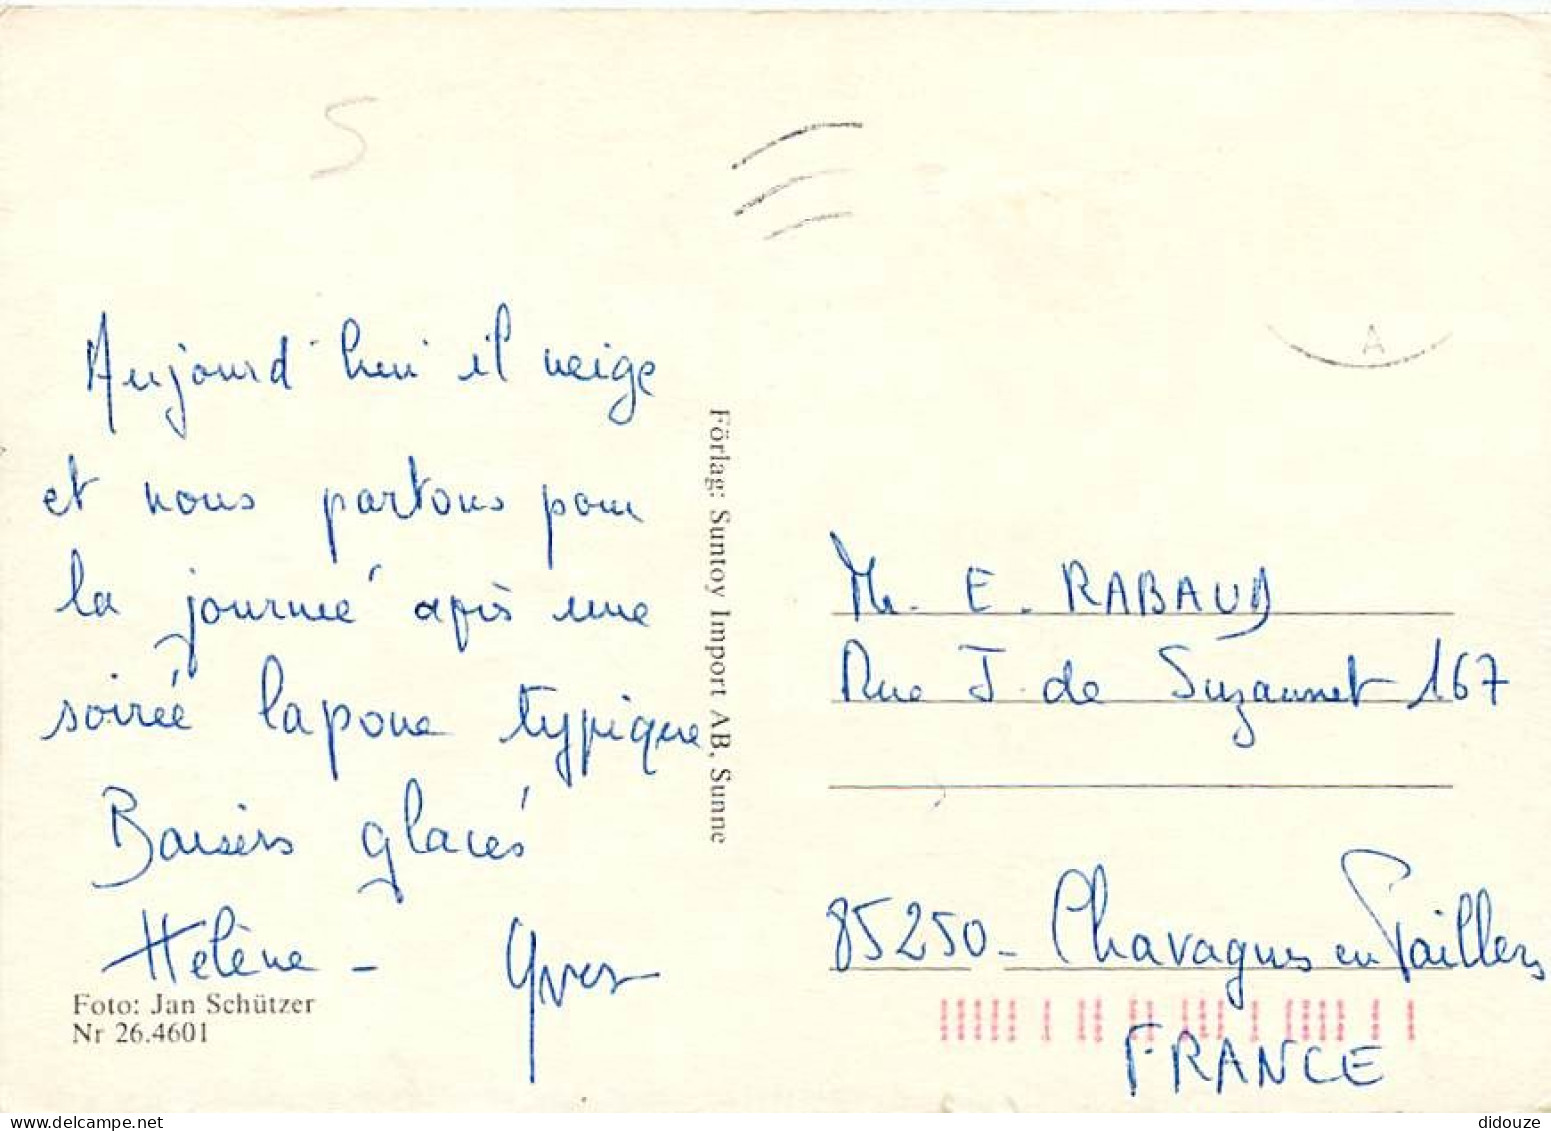 S
A
Aujourd'hui il neige
et nous partons pour
la journée après une
soirée lapone typique
Baisers glacés
Hélène - Yves
Foto: Jan Schützer
Nr 26.4601
Förlag: Suntoy Import AB, Sunne
Mr. E. RABAUD
Rue J. de Suzannet 167
85250 - Chavagnes en Paillers
FRANCE
didouze